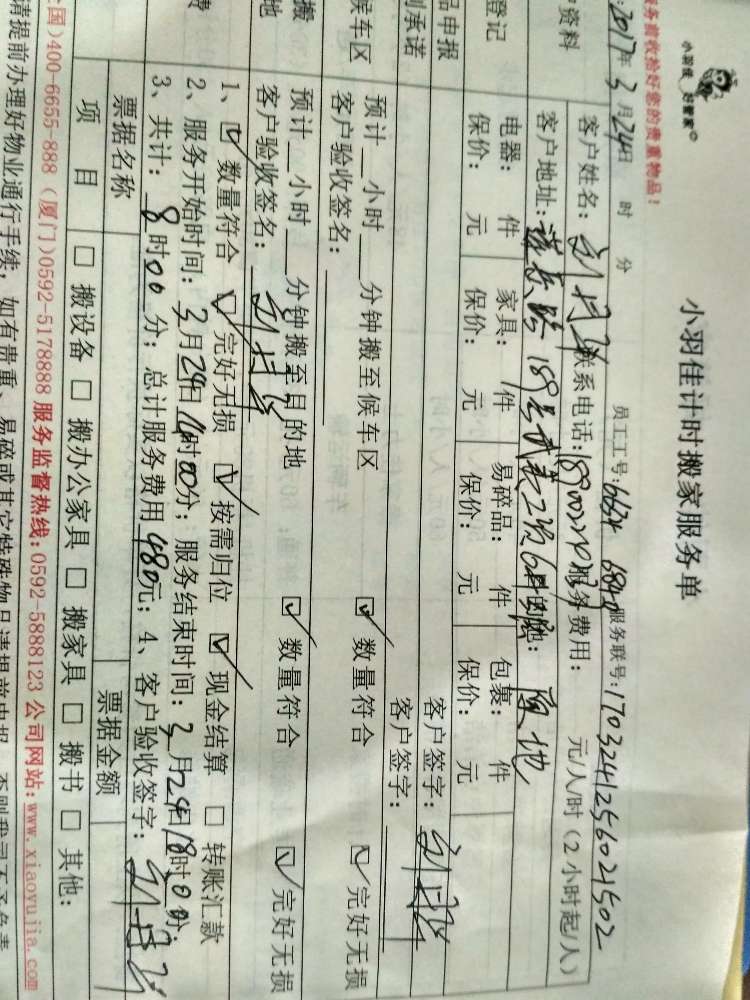 小羽佳 好管家
小羽佳计时搬家服务单
务前收拾好您的贵重物品!
员工工号: 6634 6840 服务联号: 1703241256021502
:2017年3月24日 时 分
资料
客户姓名: 联系电话: 服务费用: 元/人/时 (2小时起/人)
客户地址: 189号 原地
登记
电器: 件 家具: 件 易碎品: 件 包裹: 件
保价: 元 保价: 元 保价: 元 保价: 元
品申报
客户签字:
承诺
客户签字:
候车区
预计__小时__分钟搬至候车区 ☑ 数量符合 ☑ 完好无损
客户验收签名:
搬
地
预计__小时__分钟搬至目的地 ☑ 数量符合 ☑ 完好无损
客户验收签名:
费
1、☑ 数量符合 ☑ 完好无损 ☑ 按需归位 ☑ 现金结算 □ 转账汇款
2、服务开始时间: 3月24日14时00分; 服务结束时间: 3月24日18时00分;
3、共计: 8时00分; 总计服务费用480元; 4、客户验收签字:
票据名称 票据金额
项 目 □ 搬设备 □ 搬办公家具 □ 搬家具 □ 搬书 □ 其他:
全国)400-6655-888 (厦门)0592-5178888 服务监督热线: 0592-5888123 公司网站: www.xiaoyujia.com
请提前办理好物业通行手续, 如有贵重、易碎或其它特殊物品请提前申报, 否则我司不予负责